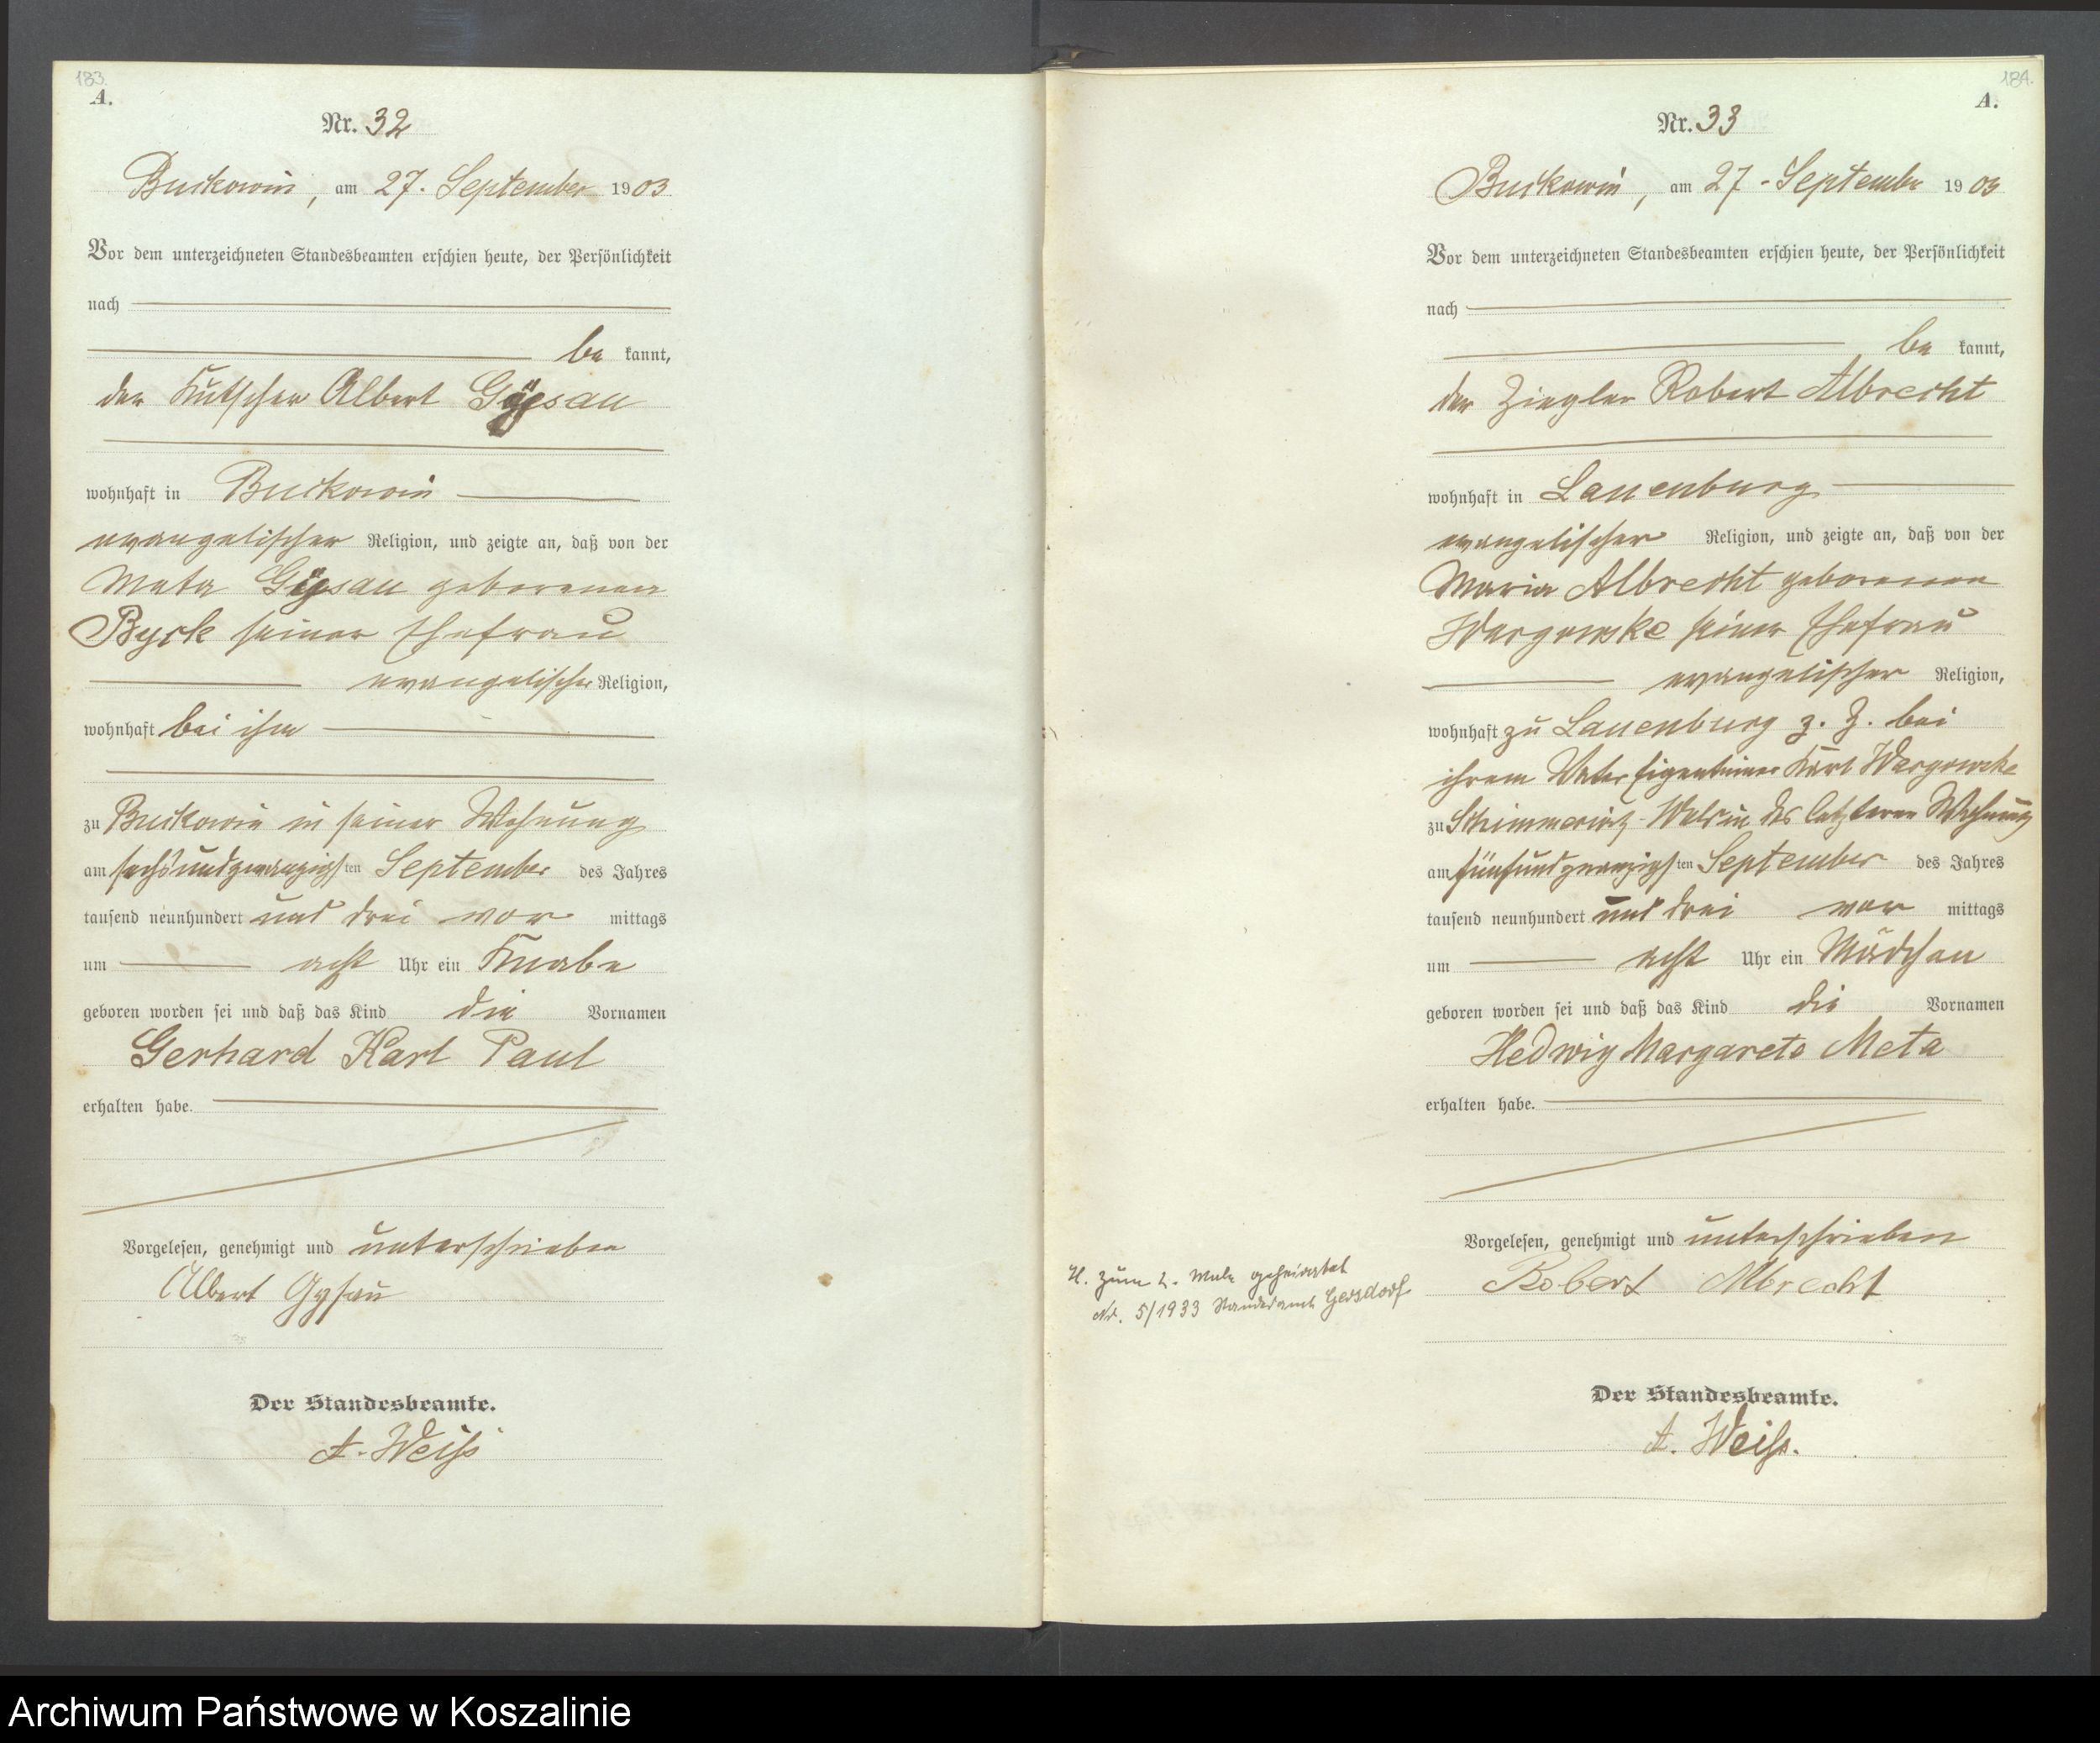 183.
A.
Nr. 32
Buckowin, am 27. September 1903
Vor dem unterzeichneten Standesbeamten erschien heute, der Persönlichkeit
nach
be kannt,
der Kutscher Albert Gÿsau
wohnhaft in Buckowin
evangelischer Religion, und zeigte an, daß von der
Meta Gÿsau geborenen
Byck seiner Ehefrau
evangelischer Religion,
wohnhaft bei ihm
zu Buckowin in seiner Wohnung
am sechsundzwanzigsten September des Jahres
tausend neunhundert und drei vor mittags
um acht Uhr ein Knabe
geboren worden sei und daß das Kind die Vornamen
Gerhard Karl Paul
erhalten habe.
Vorgelesen, genehmigt und unterschrieben
Albert Gysau
Der Standesbeamte.
A. Weiß
184.
A.
Nr. 33
Buckowin, am 27. September 1903
Vor dem unterzeichneten Standesbeamten erschien heute, der Persönlichkeit
nach
be kannt,
der Ziegler Robert Albrecht
wohnhaft in Lauenburg
evangelischer Religion, und zeigte an, daß von der
Maria Albrecht geborenen
Wargowske seiner Ehefrau
evangelischer Religion,
wohnhaft zu Lauenburg z. Z. bei
ihrem Vater Eigentümer Karl Wargowske
zu in des letzteren Wohnung
am fünfundzwanzigsten September des Jahres
tausend neunhundert und drei vor mittags
um acht Uhr ein Mädchen
geboren worden sei und daß das Kind die Vornamen
Hedwig Margarete Meta
erhalten habe.
Vorgelesen, genehmigt und unterschrieben
Robert Albrecht
Der Standesbeamte.
A. Weiß.
zum 2. Male geheiratet
Nr. 5/1933 Standesamt Gersdorf
Archiwum Państwowe w Koszalinie